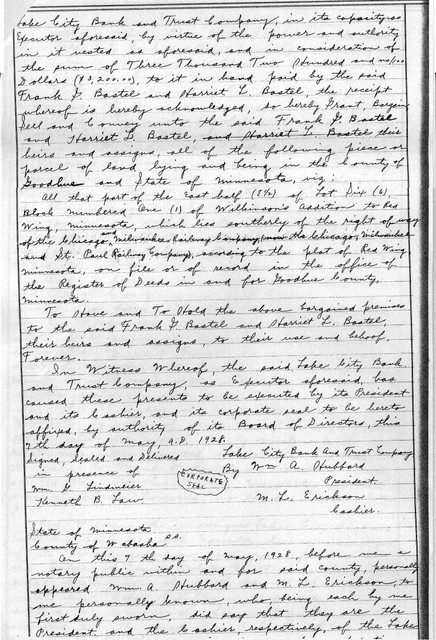 Lake City Bank and Trust Company, in its capacity as
Executor aforesaid, by virtue of the power and authority
in it vested as aforesaid, and in consideration of
the sum of Three Thousand Two Hundred and no/100
Dollars ($3,200.00), to it in hand paid by the said
Frank G. Bastel and Harriet L. Bastel, the receipt
whereof is hereby acknowledged, so hereby Grant, Bargain
Sell and Convey unto the said Frank G. Bastel
and Harriet L. Bastel and Harriet L. Bastel their
heirs and assigns, all of the following piece or
parcel of land lying and being in the County of
Goodhue and State of Minnesota, viz:
All that part of the East half (E½) of Lot Six (6)
Block numbered One (1) of Wilkinson's Addition to Red
Wing, Minnesota, which lies southerly of the right of way
of the Chicago, and Milwaukee Railway Company (now the Chicago, Milwaukee
and St. Paul Railway Company), according to the plat of Red Wing
Minnesota, on file or of record in the office of
the Register of Deeds in and for Goodhue County,
Minnesota.
To Have and To Hold the above bargained premises
to the said Frank G. Bastel and Harriet L. Bastel,
their heirs and assigns, to their use and behoof,
Forever.
In Witness Whereof, the said Lake City Bank
and Trust Company, as Executor aforesaid, has
caused these presents to be executed by its President
and its Cashier, and its corporate seal to be hereto
affixed, by authority of its Board of Directors, this
7th day of May, A.D. 1928.
Signed, Sealed and Delivered Lake City Bank And Trust Company
in presence of By Wm A. Hubbard
Wm. G. Lindmeier CORPORATE SEAL President.
Kenneth B. Law. M. L. Erickson
Cashier.
State of Minnesota
County of Wabasha ss.
On this 7th day of May, 1928, before me a
notary public within and for said county, personally
appeared Wm. A. Hubbard and M. L. Erickson, to
me personally known, who, being each by me
first duly sworn, did say that they are the
President and the Cashier, respectively, of the Lake